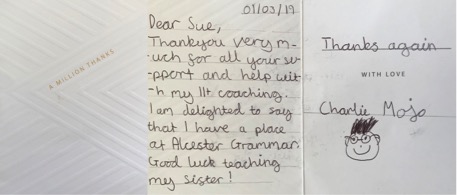 A MILLION THANKS
01/03/19
Dear Sue,
Thankyou very m-
-uch for all your su-
-pport and help wit-
-h my 11+ coaching.
I am delighted to say
that I have a place
at Alcester Grammar.
Good luck teaching
my sister!
Thanks again
WITH LOVE
Charlie Mojo